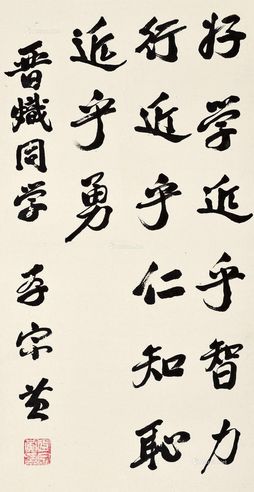 好学近乎智力
行近乎仁知恥
近乎勇
晋熾同学
李宗黄